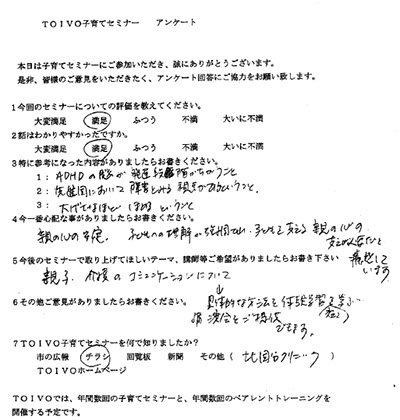 TOIVO子育てセミナー アンケート
本日は子育てセミナーにご参加いただき、誠にありがとうございます。
是非、皆様のご意見をいただきたく、アンケート回答にご協力をお願い致します。
1今回のセミナーについての評価を教えてください。
大変満足 満足 ふつう 不満 大いに不満
2話はわかりやすかったですか。
大変満足 満足 ふつう 不満 大いに不満
3特に参考になった内容がありましたらお書きください。
1: ADHDの脳が発達
2: において障害
3: 大げさなほど ほめる ということ
4今一番心配な事がありましたらお書きください。
親の心の安定。 子どもへの理解が 子どもを支える 親の心の
支えが必要だと
痛感して
います
5今後のセミナーで取り上げてほしいテーマ、講師等ご希望がありましたらお書き下さい
親子、 のコミュニケーションについて
↓
6その他ご意見がありましたらお書きください。
具体的な方法を体験学習を
講演会をご
7TOIVO子育てセミナーを何で知りましたか?
市の広報 チラシ 回覧板 新聞 その他( クリニック )
TOIVOホームページ
TOIVOでは、年間数回の子育てセミナーと、年間数回のペアレントトレーニングを
開催する予定です。